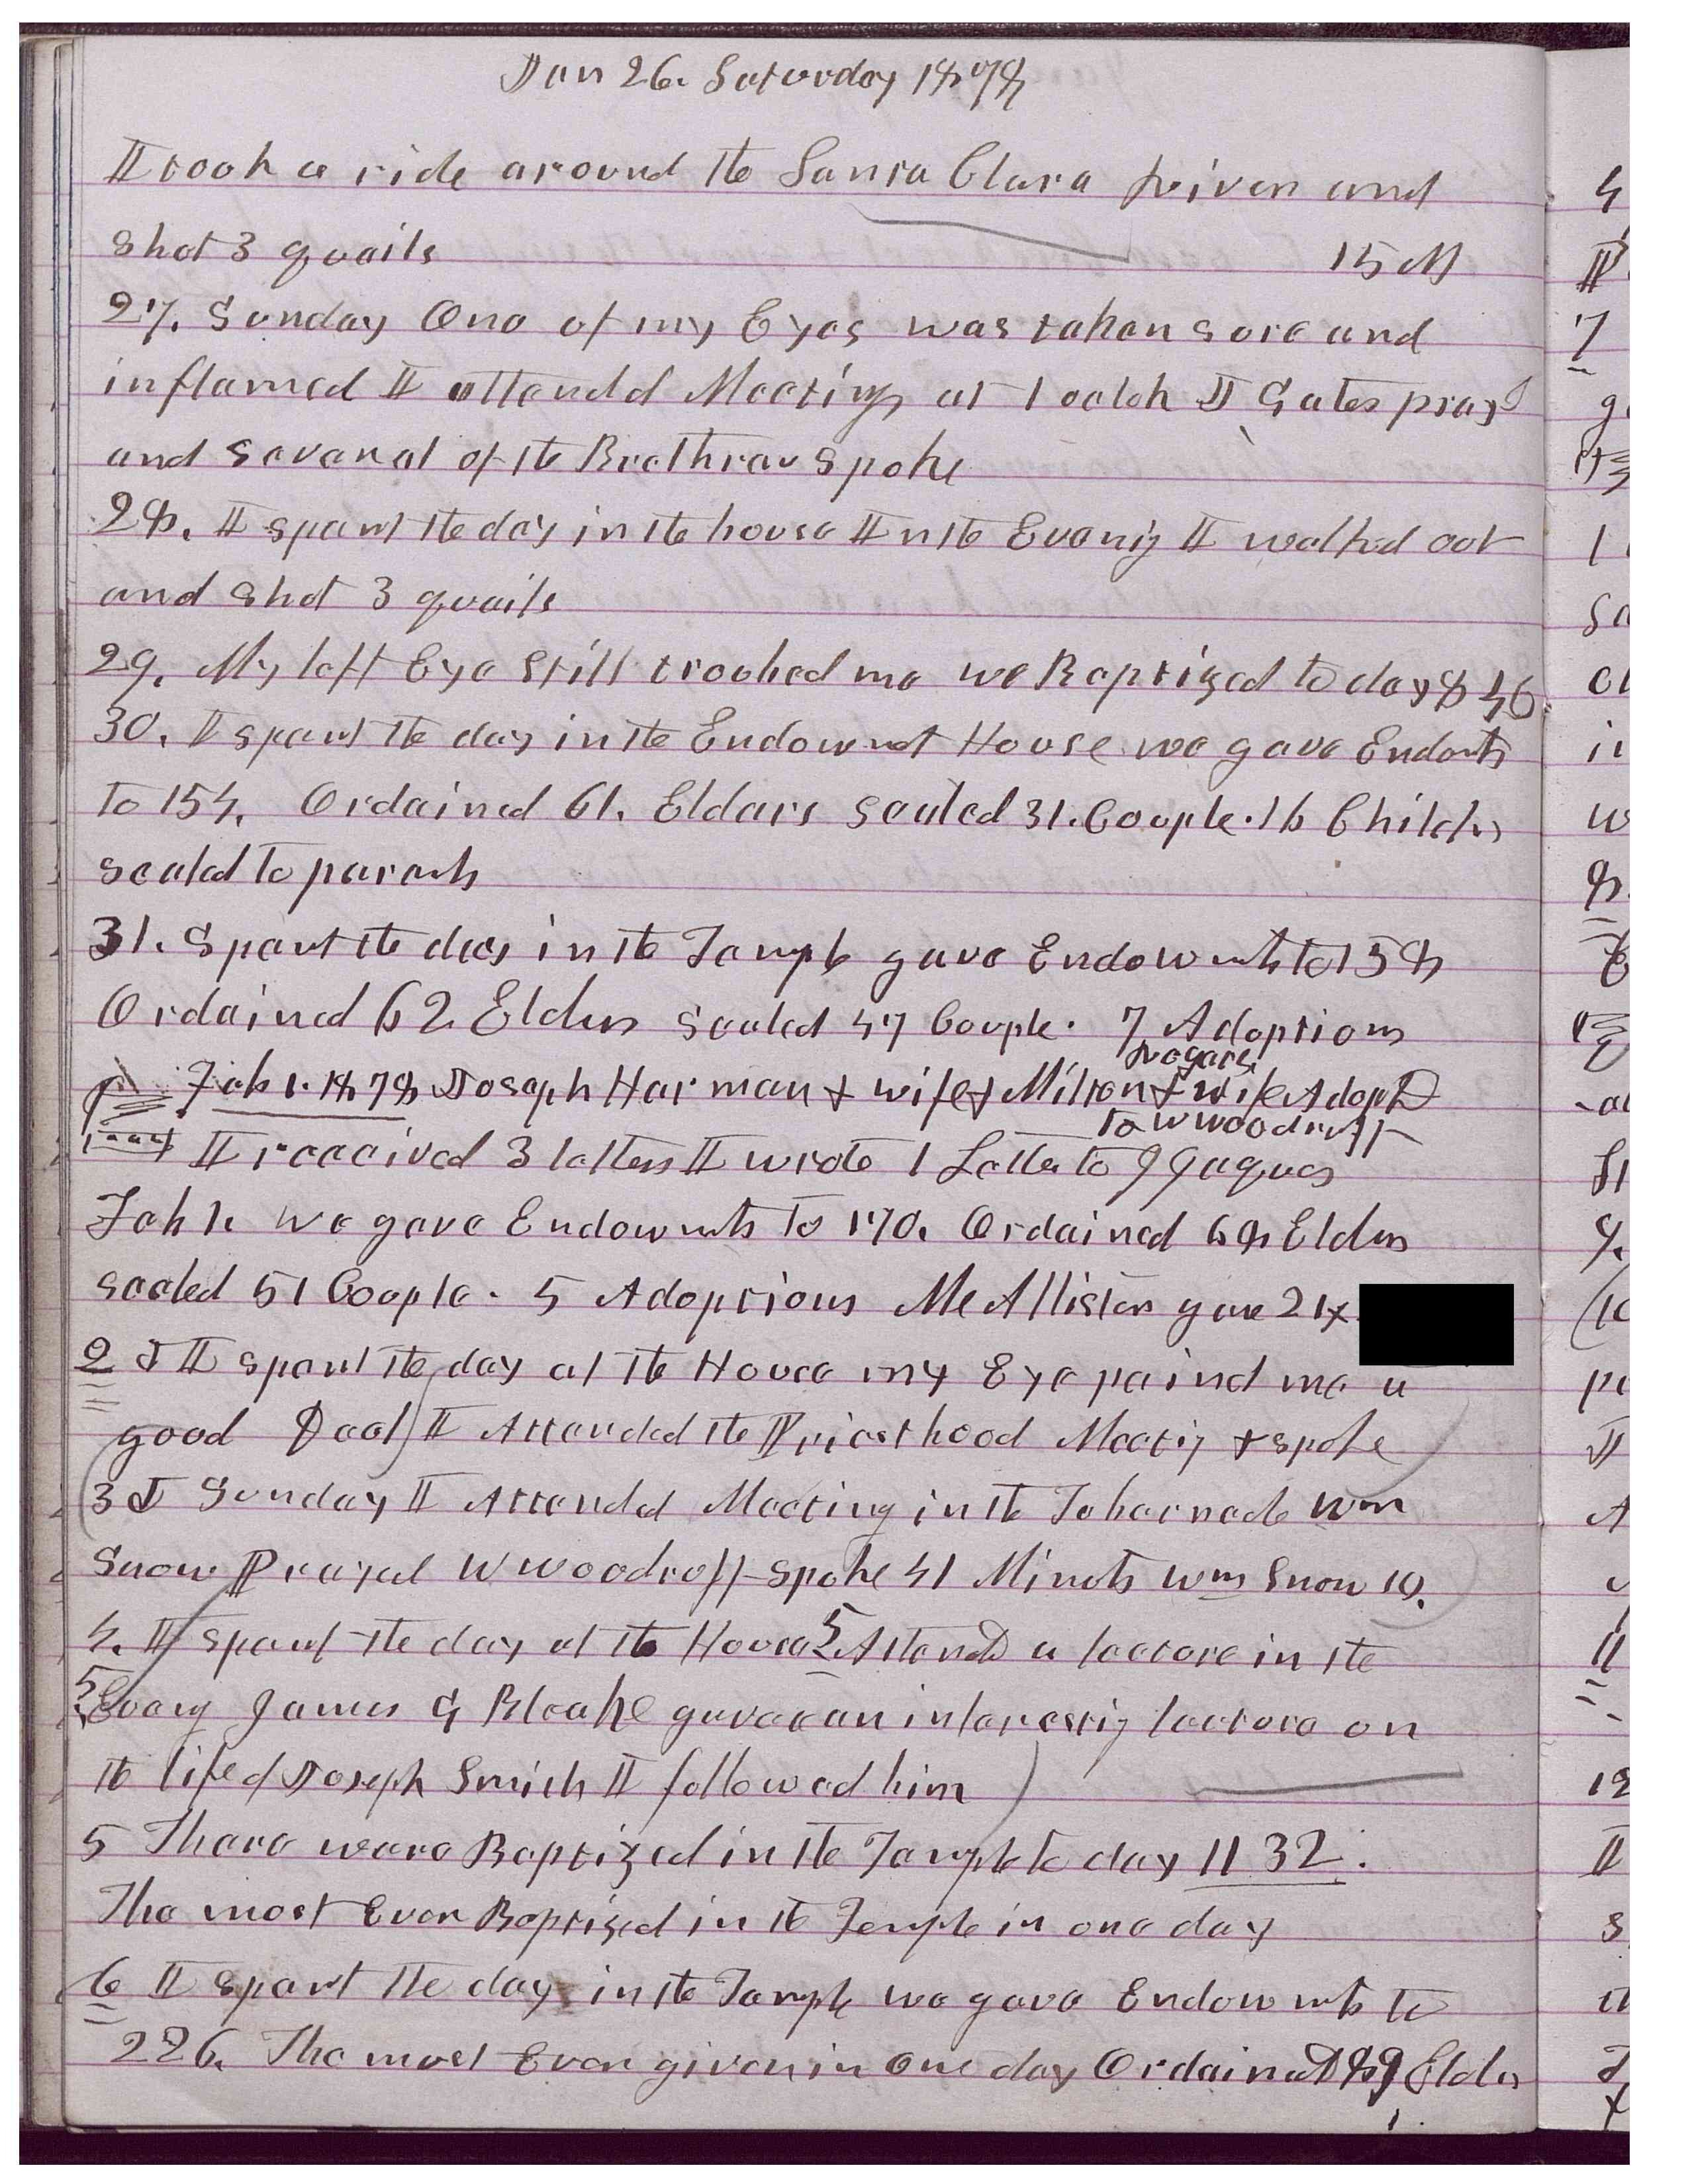 Jan 26. Saturday 1878
I took a ride around the Santa Clara River and
shot 3 quails 15 M
27. Sunday One of my Eyes was taken sore and
inflamed I attendd Meeting at 1 oclok J Gates prayd
and several of the Brethren spoke
28. I spent the day in the house In the Evenig I walked out
and shot 3 quails
29. My left Eye still troubled me we Baptized to day 846
30. I spent the day in the Endowmet House we gave Endowts
to 154. Ordained 61. Elders sealed 31. Couple. 16 Childrn
sealed to parents
31. Spent the day in the Temple gave Endowmts to 158
Ordained 62 Elders sealed 47 Couple. 7 Adoptions
Feb 1. 1878 Joseph Harman & wife & Milton & wife Adoptd
to W Woodruff
I received 3 letters I wrote 1 Letter to Jaques
Feb 1. we gave Endowmts to 170. Ordained 68 Elders
sealed 51 Couple. 5 Adoptions McAllister gave 2nd
2d I spent the day at the House my Eye paind me a
good Deal I Attended the Priesthood Meetig & spoke
3d Sunday I Attended Meeting in the Tabernacle Wm
Snow Prayed W Woodruff spoke 41 Minuts Wm Snow 10.
4. I spent the day at the House 5 Attend a lecture in the
5 Eveng James G Bleake gave an interestig lecture on
the life of Joseph Smith I followed him
5 There were Baptized in the Temple to day 1132.
The most Ever Baptized in the Temple in one day
6 I spent the day in the Temple we gave Endowmts to
226. The most Ever given in One day Ordained 89 Elders